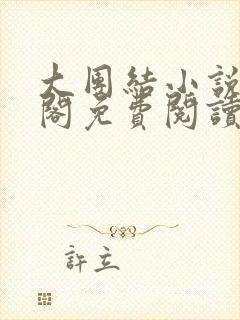 大團結小說
閣免費閱讀
許立